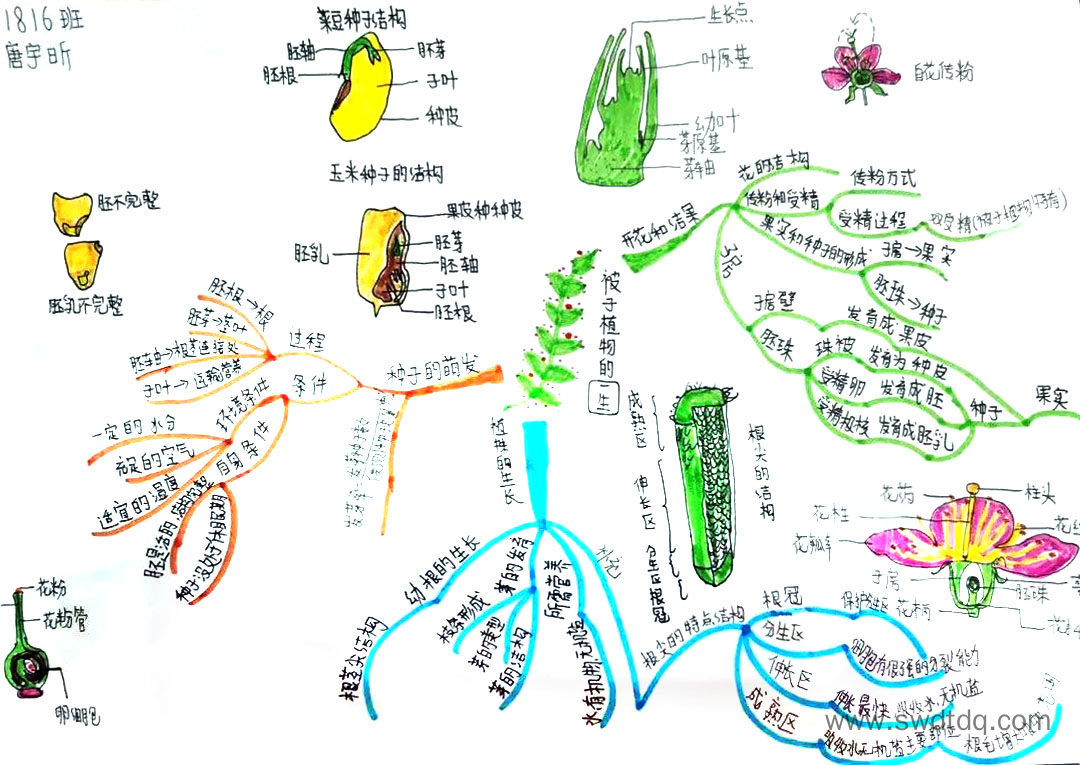 1816班
唐宇昕
菜豆种子结构
胚轴
胚芽
胚根
子叶
种皮
玉米种子的结构
果皮种种皮
胚芽
胚乳
胚轴
子叶
胚根
胚不完整
胚乳不完整
生长点
叶原基
幼叶
芽原基
芽轴
自花传粉
被子植物的一生
开花和结果
花的结构
传粉和受精
传粉方式
受精过程
双受精(被子植物特有)
果实和种子的形成
子房→果实
胚珠→种子
子房
子房壁
发育成果皮
胚珠
珠被
发育为种皮
受精卵
发育成胚
受精极核
发育成胚乳
种子
果实
种子的萌发
过程
胚根→根
胚芽→茎叶
胚轴→根茎连接处
子叶→运输营养
条件
环境条件
一定的水分
充足的空气
适宜的温度
自身条件
种子没处于休眠期
植株的生长
幼根的生长
根茎尖结构
芽的发育
枝条形成
芽的类型
芽的结构
所需营养
水有机物无机盐
根尖的特点结构
根冠
保护分生区
分生区
细胞有很强的分裂能力
伸长区
伸长最快 吸收水,无机盐
成熟区
吸收水无机盐主要部位
根尖的结构
成熟区
伸长区
分生区
根冠
花药
柱头
花柱
花瓣
子房
胚珠
花柄
花粉
花粉管
卵细胞
www.swdtdq.com